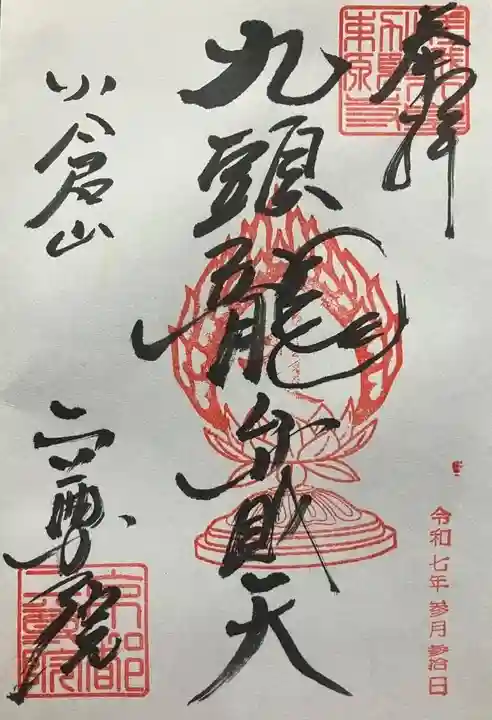 奉拝
九頭龍弁財天
小倉山
二尊院
令和七年参月参拾日